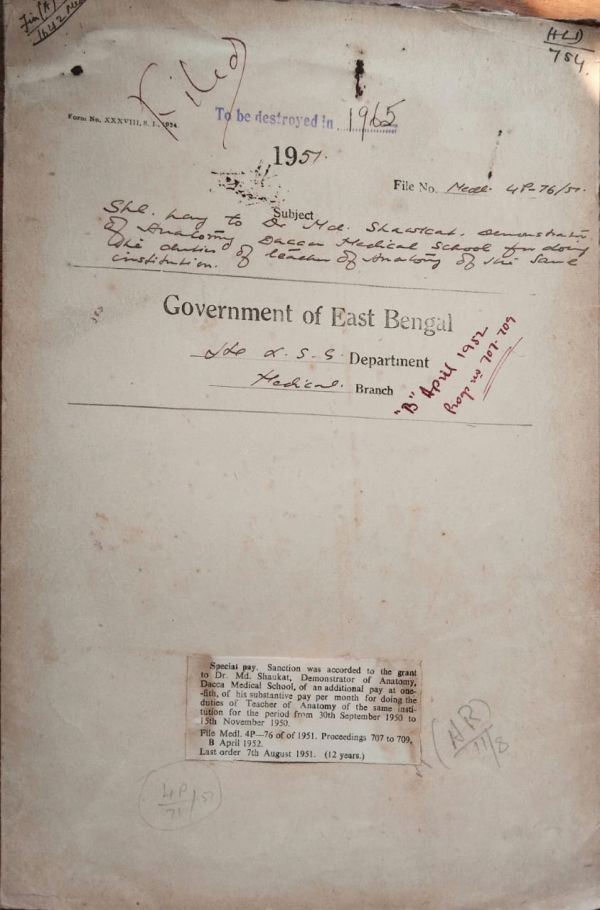 Fin (A)
H&D
754
Filed
Form No. XXXVIII, S. I., 1934
To be destroyed in 1965
1951.
File No. Medl. 4P-76/51.
Subject
Spl. pay to Dr Md. Shawkat, Demonstrator
of Anatomy, Dacca Medical School for doing
the duties of teacher of Anatomy of the same
institution.
Government of East Bengal
H & L. S. G. Department
Medical. Branch
"B" April 1952
Progs no 707-709
Special pay. Sanction was accorded to the grant
to Dr. Md. Shaukat, Demonstrator of Anatomy,
Dacca Medical School, of an additional pay at one-
-fith, of his substantive pay per month for doing the
duties of Teacher of Anatomy of the same insti-
tution for the period from 30th September 1950 to
15th November 1950.
File Medl. 4P—76 of of 1951. Proceedings 707 to 709,
B April 1952.
Last order 7th August 1951. (12 years.)
(NR)
11/8
4P
71/51